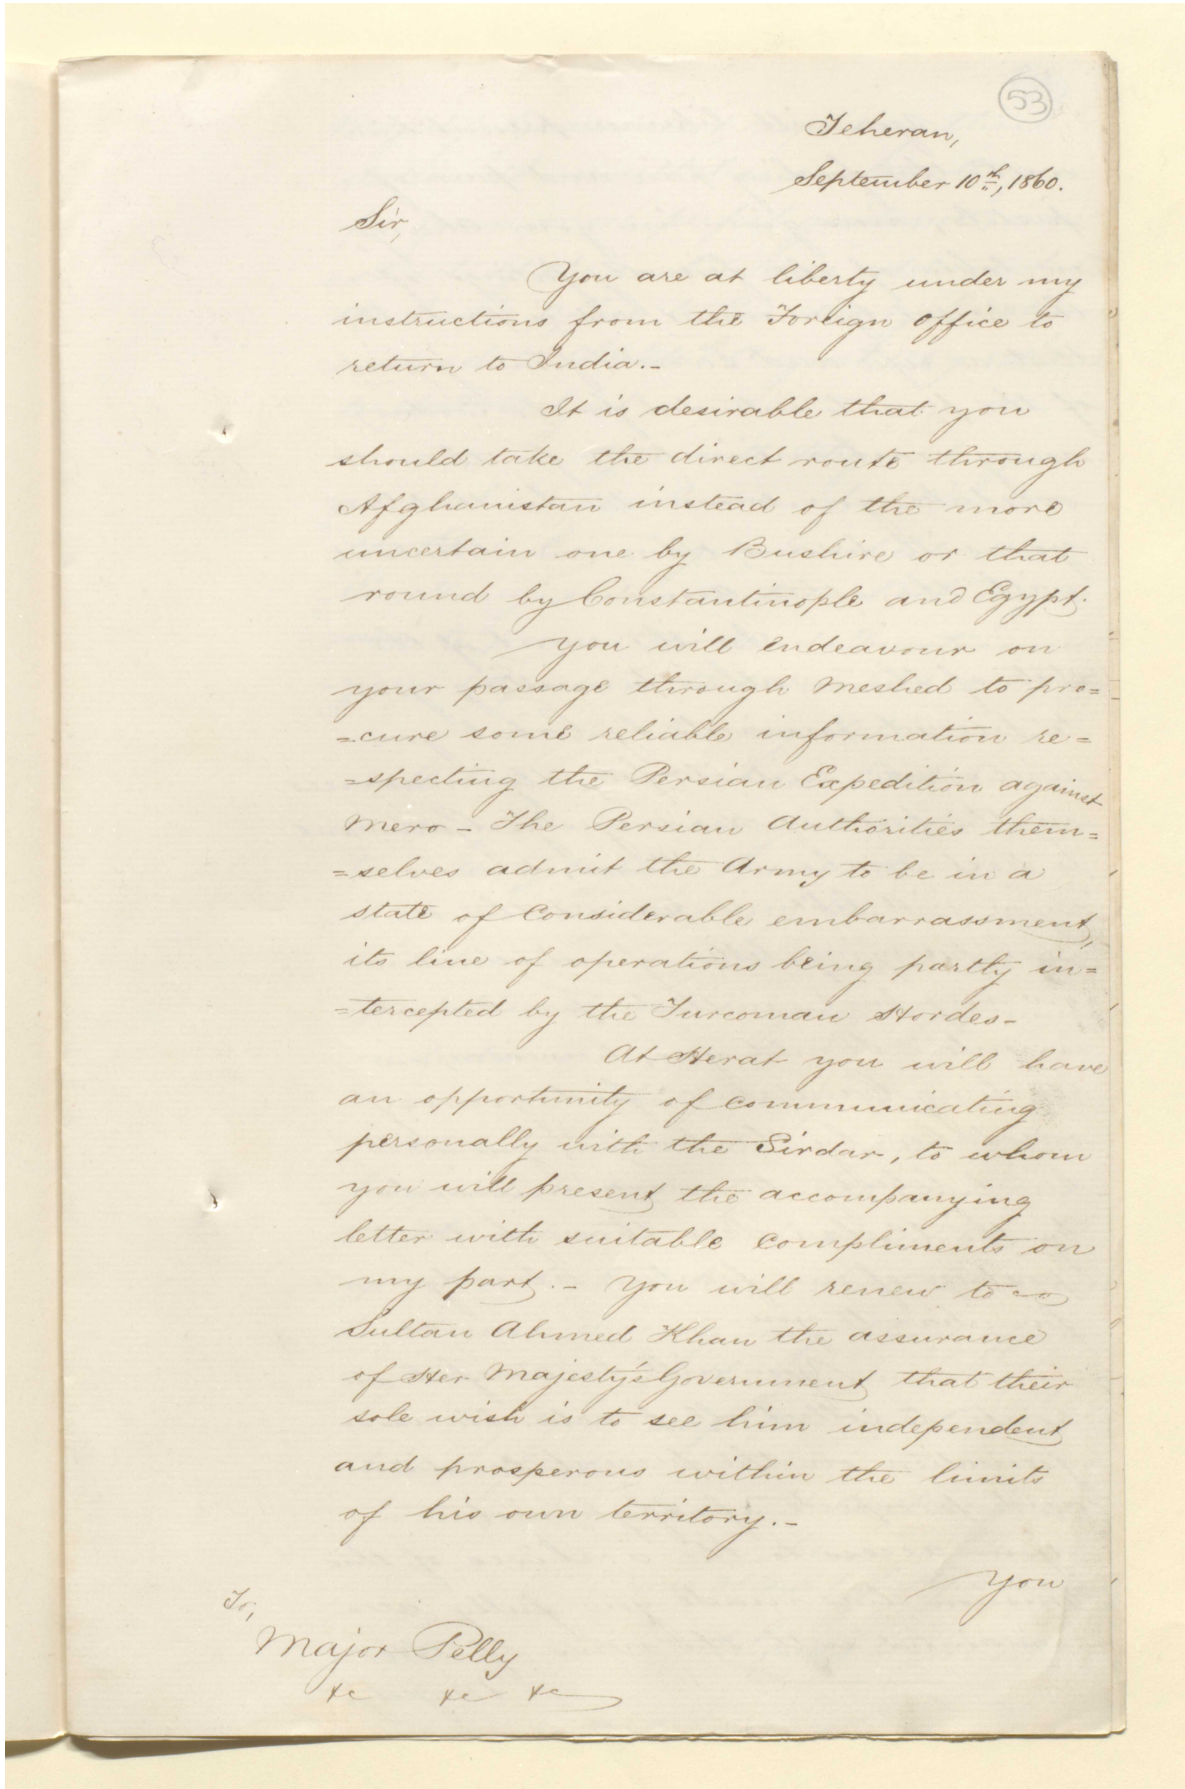 53
Teheran,
September 10th, 1860.
Sir,
You are at liberty under my
instructions from the Foreign Office to
return to India.-
It is desirable that you
should take the direct route through
Afghanistan instead of the more
uncertain one by Bushire or that
round by Constantinople and Egypt.
You will endeavour on
your passage through Meshed to pro=
=cure some reliable information re=
=specting the Persian Expedition against
Merv - The Persian Authorities them=
=selves admit the Army to be in a
state of considerable embarrassment,
its line of operations being partly in=
=tercepted by the Turcoman Hordes-
At Herat you will have
an opportunity of communicating
personally with the Sirdar, to whom
you will present the accompanying
letter with suitable compliments on
my part.- You will renew to
Sultan Ahmed Khan the assurance
of Her Majesty's Government that their
sole wish is to see him independent
and prosperous within the limits
of his own territory.-
You
To,
Major Pelly
&c &c &c